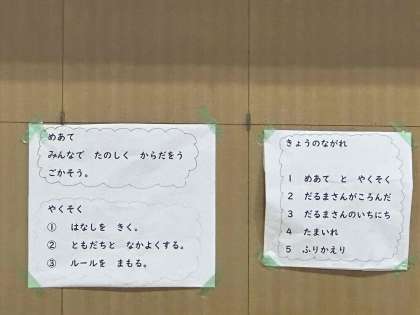 めあて
みんなで　たのしく　からだをう
ごかそう。
やくそく
①　はなしを　きく。
②　ともだちと　なかよくする。
③　ルールを　まもる。
きょうのながれ
1　めあて　と　やくそく
2　だるまさんがころんだ
3　だるまさんのいちにち
4　たまいれ
5　ふりかえり